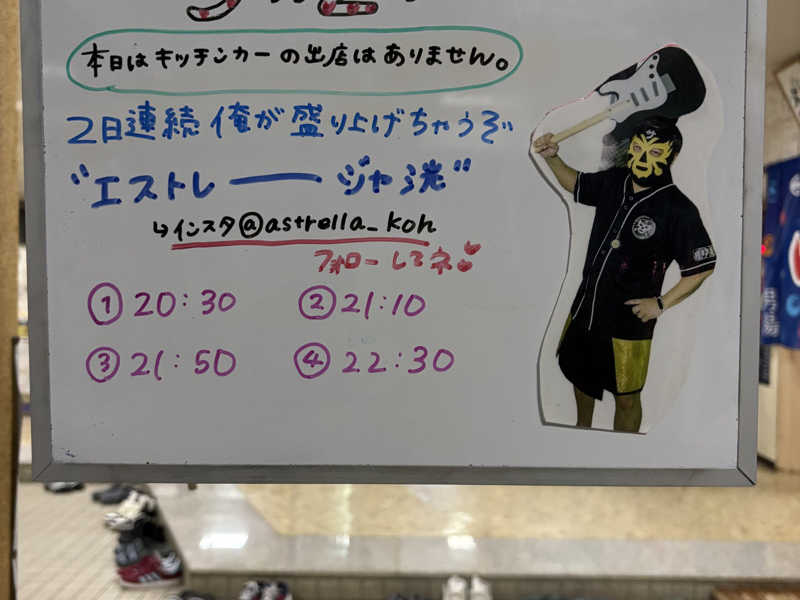 本日はキッチンカーの出店はありません。
2日連続俺が盛り上げちゃうぞ
"エストレージャ洸"
↳インスタ@astrella_koh
フォローしてネ
① 20:30 ② 21:10
③ 21:50 ④ 22:30